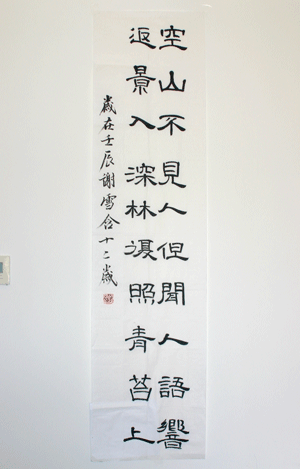 空山不見人但聞人語響
返景入深林復照青苔上
歲在壬辰謝雪含十二歲